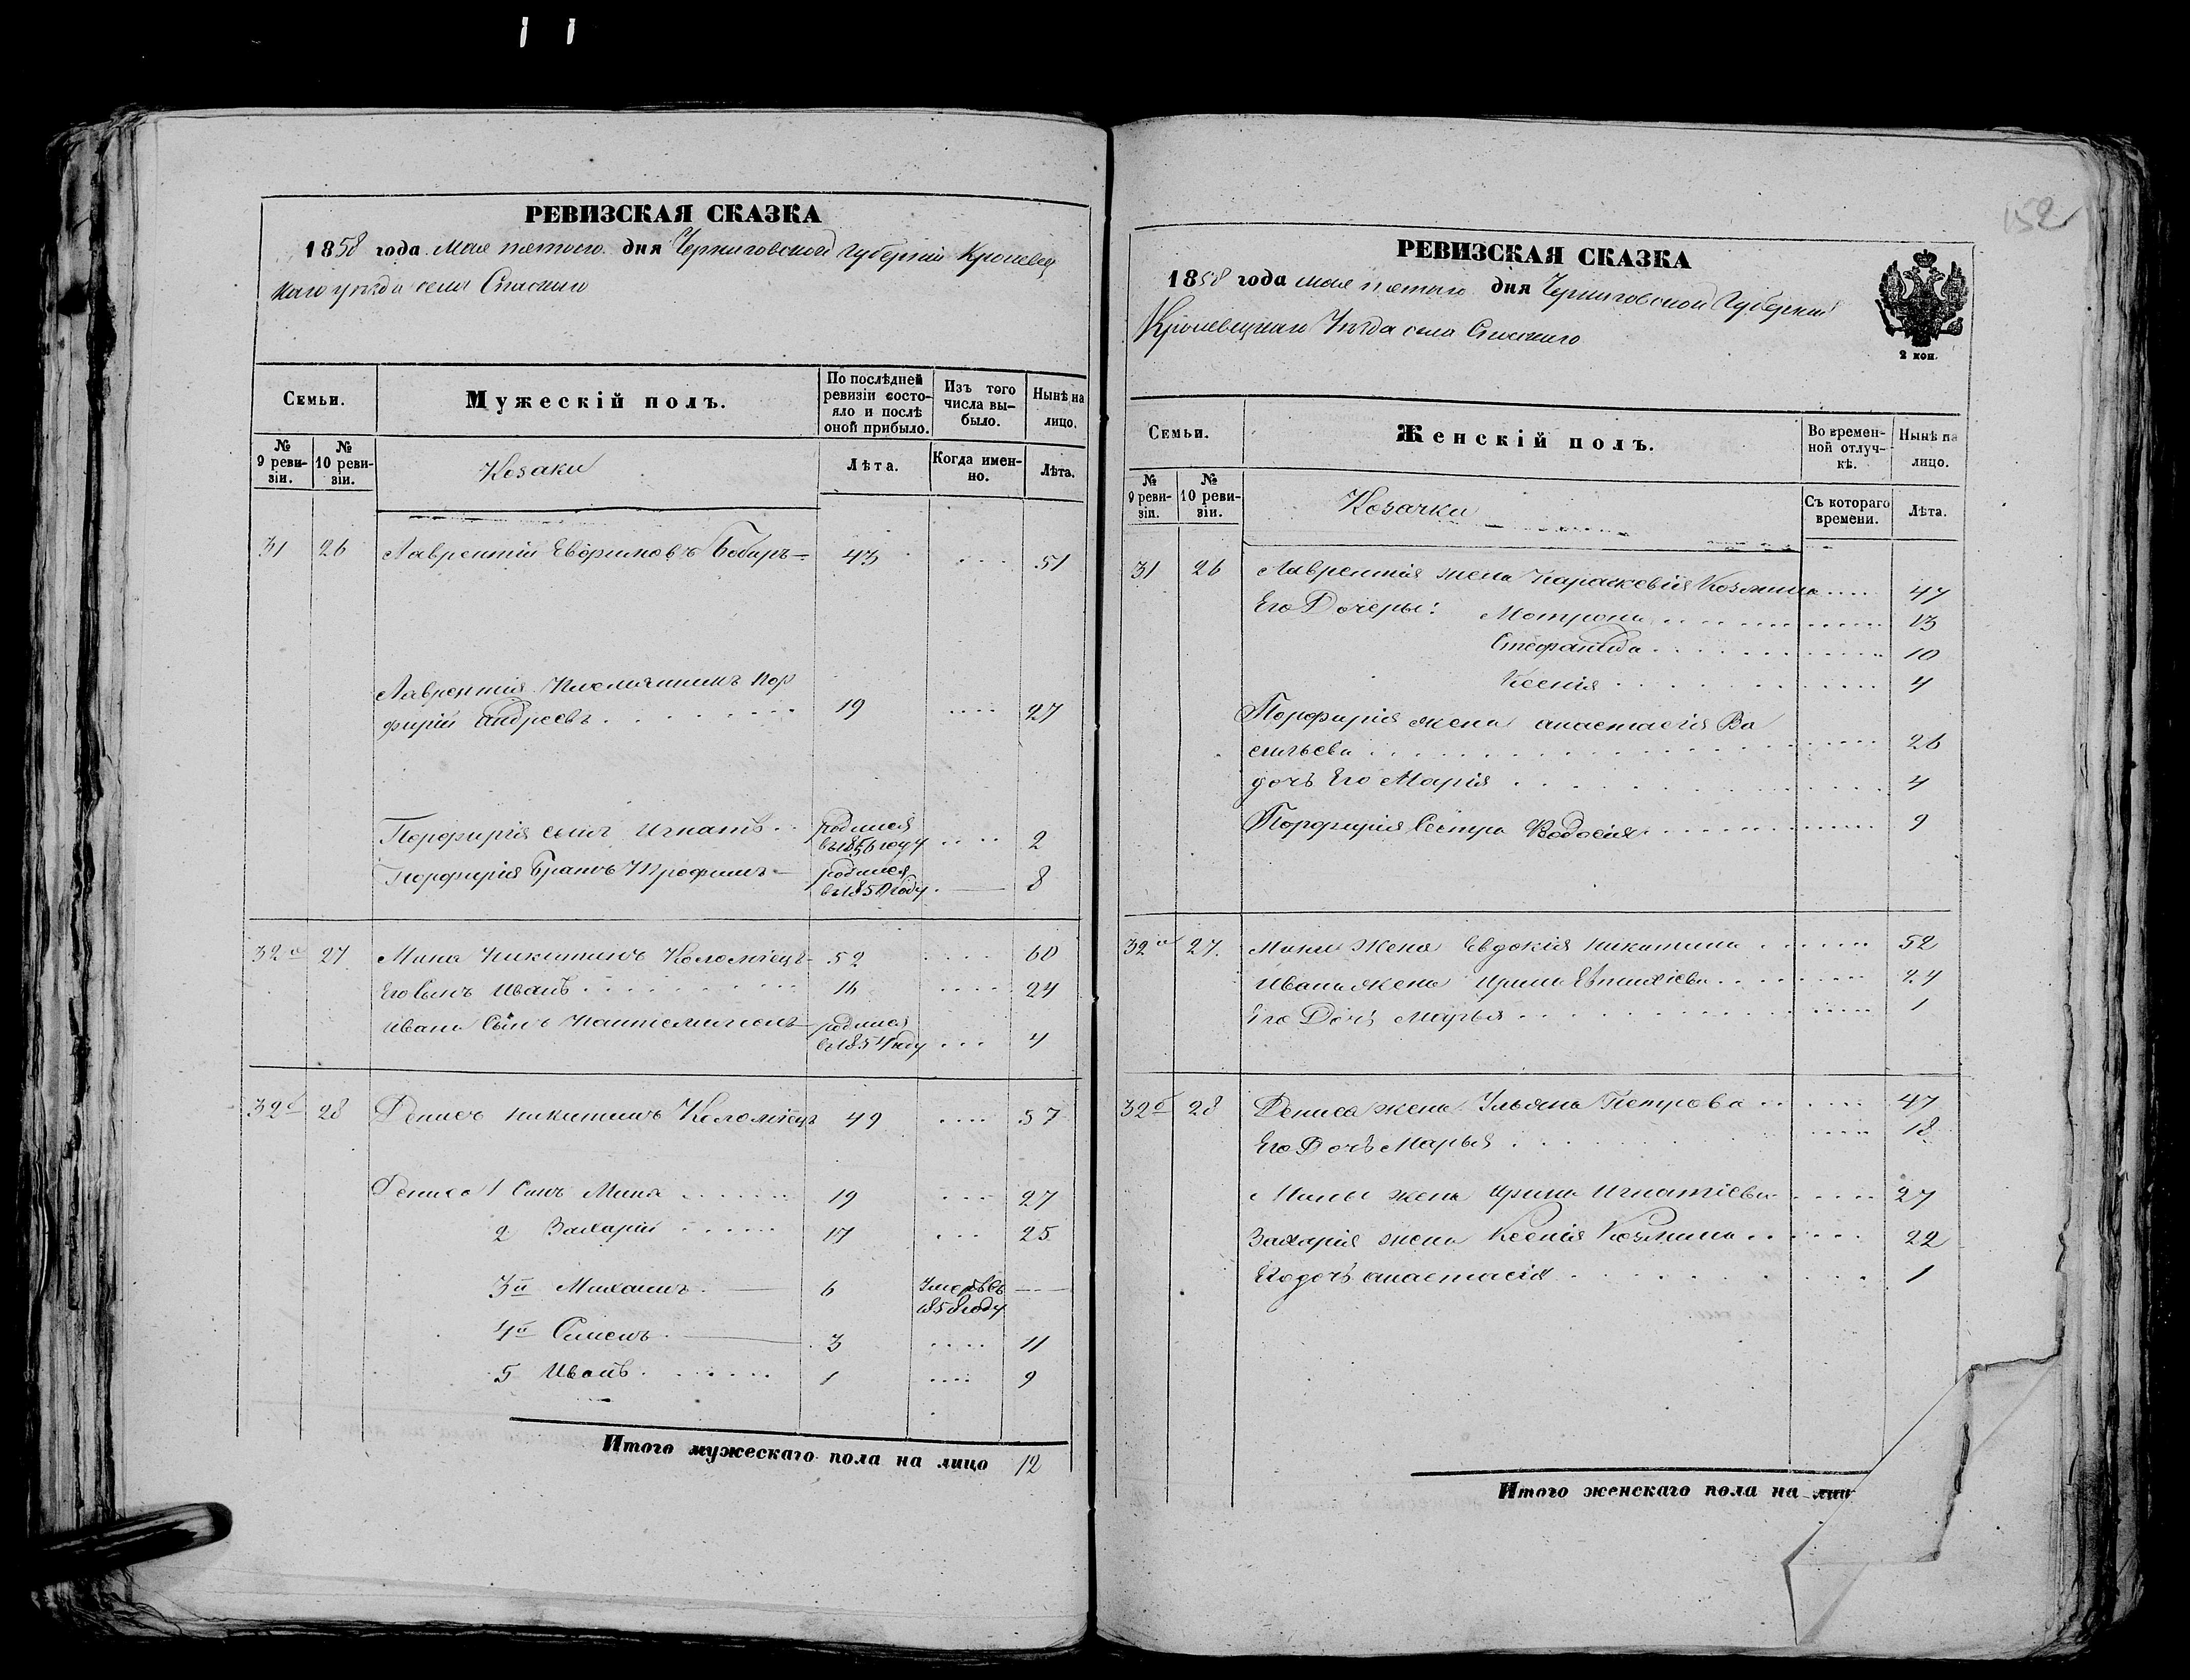 РЕВИЗСКАЯ СКАЗКА
1858 года мая пятого дня Черниговской Губерніи Кролевец
каго уѣзда села Спаского
Семьи.
Мужескій полъ.
По послѣдней ревизіи состояло и послѣ оной прибыло.
Изъ того числа выбыло.
Нынѣ на лицо.
№ 9 ревизіи.
№ 10 ревизіи.
Козаки
Лѣта.
Когда именно.
Лѣта.
31 26 Лаврентій Евфимовъ Бобырь 43 51
Лаврентія Племянникъ Пор
фирій Андреевъ 19 27
Порфирія сынъ Игнатъ родился въ 1856 году 2
Порфирія Братъ Трофимъ родился въ 1850 году 8
32а 27 Мина Никитинъ Коломіецъ 52 60
Его Сынъ Иванъ 16 24
Ивана Сынъ Пантелимонъ родился въ 1854 году 4
32б 28 Денисъ Никитинъ Коломіецъ 49 57
Дениса 1 Сынъ Мина 19 27
2 Захарій 17 25
3й Михаилъ 6 Умеръ въ 1858 году
4й Сименъ 3 11
5 Иванъ 1 9
Итого мужескаго пола на лицо 12
152
РЕВИЗСКАЯ СКАЗКА
1858 года мая пятого дня Черниговской Губерніи
Кролевецкаго Уѣзда села Спаского
2 коп.
Семьи.
Женскій полъ.
Во временной отлучкѣ.
Нынѣ на лицо.
№ 9 ревизіи.
№ 10 ревизіи.
Козачки
Съ котораго времени.
Лѣта.
31 26 Лаврентія жена Параскевія Козмина 47
Его Дочеры: Мотрона 13
Стефанида 10
Ксенія 4
Порфирія жена Анастасія Ва
сильева 26
дочь Его Марія 4
Порфирія Сестра Федосія 9
32а 27. Мины Жена Евдокія Никитина 52
Ивана жена Ирина Евтихіева 24
Его Дочь Марья 1
32б 28 Дениса жена Ульяна Петрова 47
Его Дочь Марья 18
Мины жена Ирина Игнатіева 27
Захарія жена Ксенія Козмина 22
Его дочь Анастасія 1
Итого женскаго пола на лиц